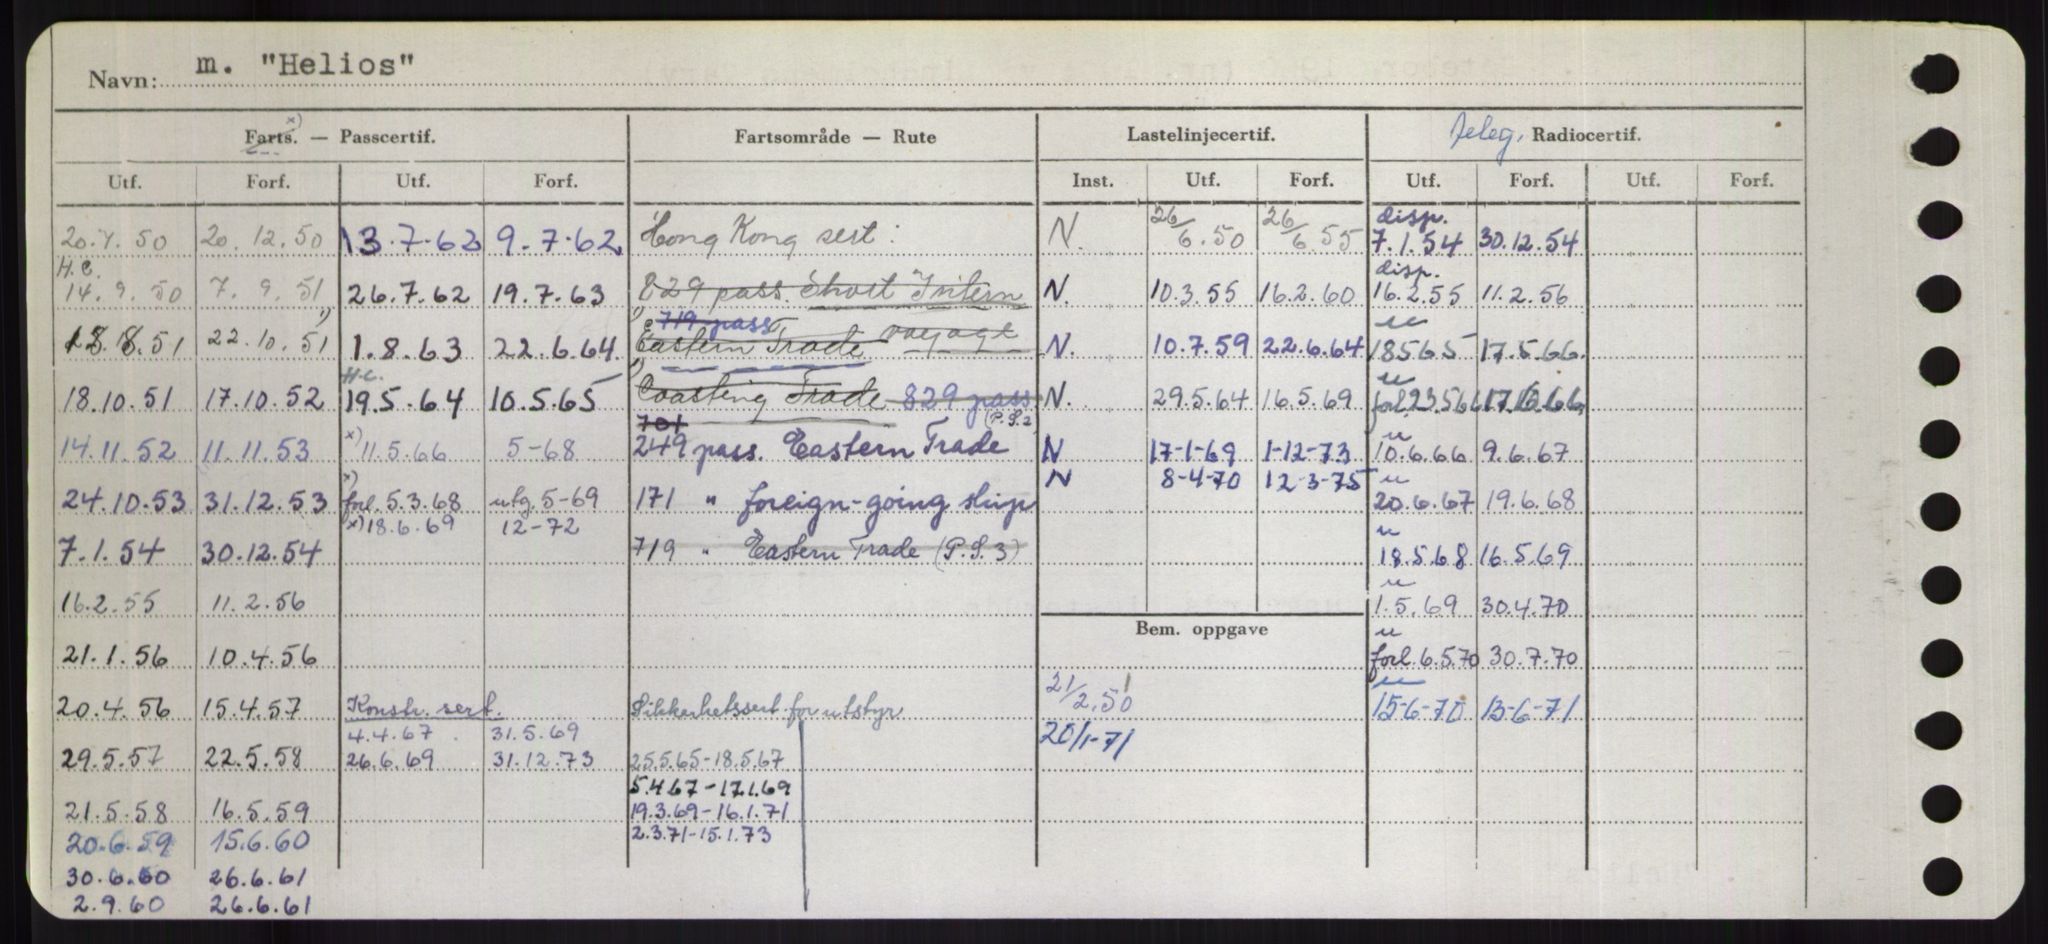 Navn: m. "Helios"
Farts. x) — Passcertif. Fartsområde — Rute Lastelinjecertif. Teleg. Radiocertif.
Utf. Forf. Utf. Forf. Inst. Utf. Forf. Utf. Forf. Utf. Forf.
disp.
20.7.50 20.12.50 13.7.62 9.7.62 Hong Kong sert: N. 26/6.50 26/6.55 7.1.54 30.12.54
H.C. disp.
14.9.50 7.9.51 26.7.62 19.7.63 829 pass. Short Intern N. 10.3.55 16.2.60 16.2.55 11.2.56
719 pass voyage
18.8.51 22.10.51 1.8.63 22.6.64 Eastern Trade N. 10.7.59 22.6.64 18.5.65 17.5.66
H.C.
18.10.51 17.10.52 19.5.64 10.5.65 Coasting Trade 829 pass N. 29.5.64 16.5.69 forl. 23.5.66 17.6.66
701 (P.S.2)
14.11.52 11.11.53 x) 11.5.66 5-68 249 pass. Eastern Trade N 17-1-69 1-12-73 10.6.66 9.6.67
N 8-4-70 12-3-75
24.10.53 31.12.53 x) forl. 5.3.68 utg. 5-69 171 " foreign-going ship 20.6.67 19.6.68
x) 18.6.69 12-72
7.1.54 30.12.54 719 " Eastern Trade (P.S.3) 18.5.68 16.5.69
16.2.55 11.2.56 1.5.69 30.4.70
Bem. oppgave
21.1.56 10.4.56 forl. 6.5.70 30.7.70
20.4.56 15.4.57 Konstr. sert. Sikkerhetssert for utstyr 21/2.50 15-6-70 13-6-71
4.4.67 31.5.69 20/1-71
29.5.57 22.5.58 26.6.69 31.12.73 25.5.65-18.5.67
5.4.67-17.1.69
21.5.58 16.5.59 19.3.69-16.1.71
20.6.59 15.6.60 2.3.71-15.1.73
30.6.60 26.6.61
2.9.60 26.6.61